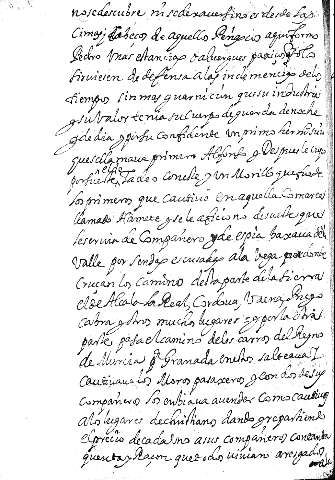 nos se descubre ni se dexa ver sino es desde las
Cimas, Cabeços de aquellos
Pedro Vnas estancias o albergues paxicos
siruiesen de defensa a las inclemencias de los
tiempos sin mas guarnicion que su industria
y su valor tenia su cuerpo de guardia de noche
y de dia y por su confidente vn primo hermano suyo
que se llamaua primero Alonso y Despues le cupo
por suerte Tadeo con ele y vn Morillo que fue de
los primeros que cautiuo en aquella Comarca
llamado Hamete y se le aficiono de suerte que
le seruia de Compañero y de espia baxaua del
Valle por sendas escusadas a la vega por donde
Cruçan los caminos desta parte de la sierra
el de Alcala la Real, Cordoua, Vaena, Priego
Cabra y otros muchos lugares y por la otra
parte pasa el camino de los carros del Reyno
de Murcia a Granada en estos salteaua I
Cautiuaua los Moros pasaxeros y con dos de sus
Compañeros los enbiaua a vender como cautiuos
a los lugares de christianos dando y repartiendo
el precio de cada vno a sus compañeros con tanta
quenta y Raçon que todos viuian arresgados